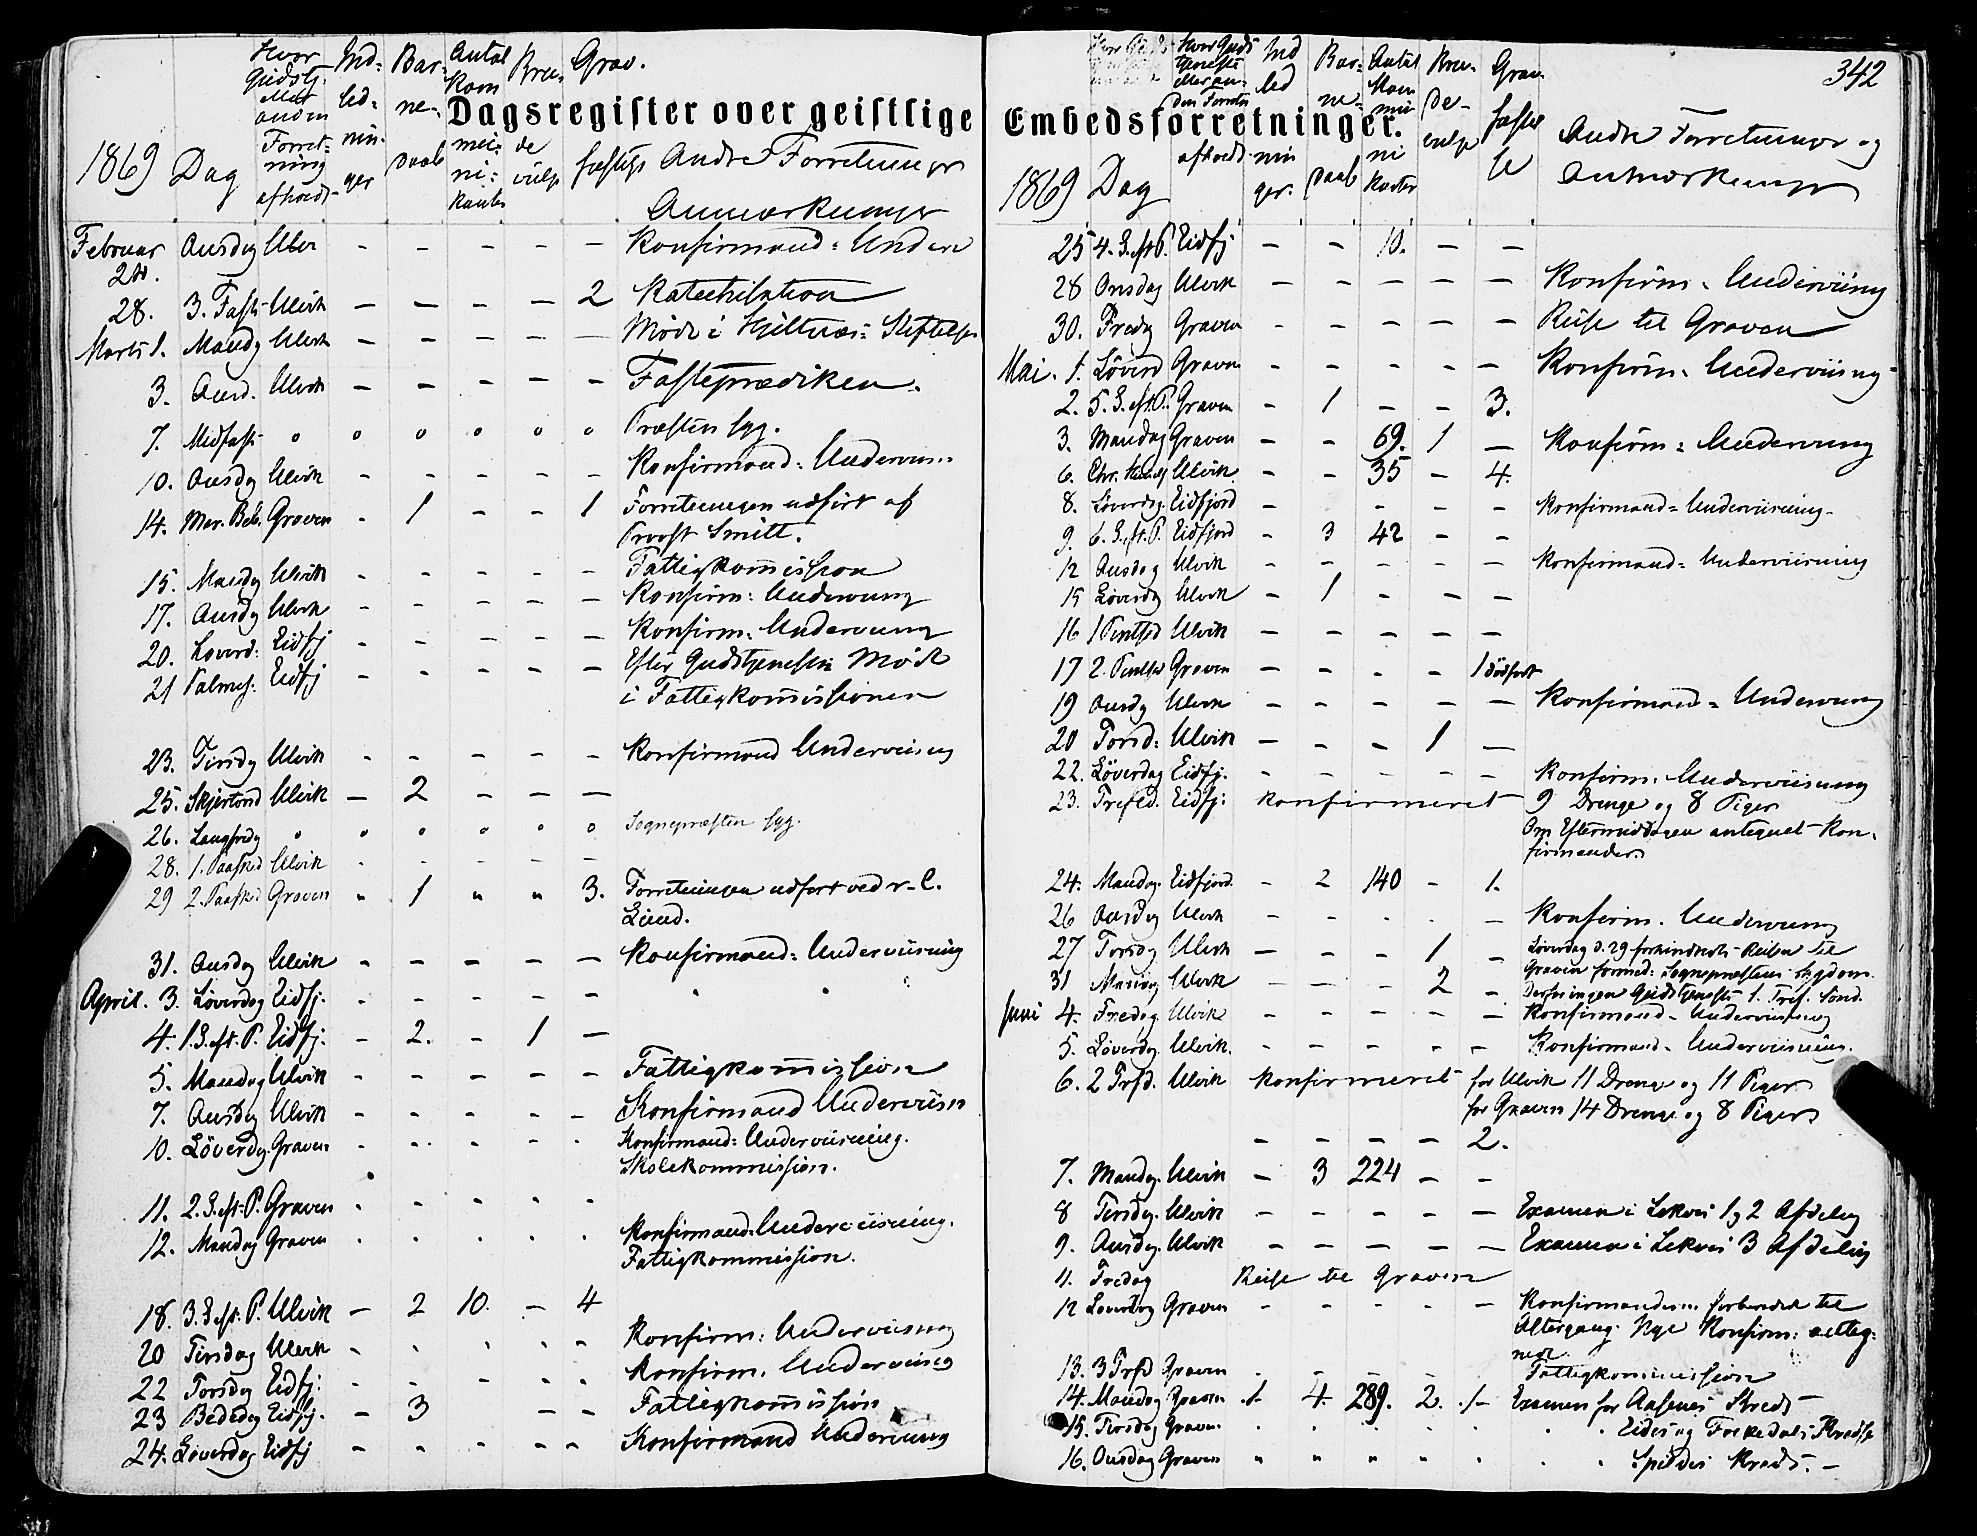 Dagsregister over geistlige
1869 Dag
Hvor Gudstj. eller anden Forretning afholdt
Indledninger
Barnedaab
Antal Kommunikanter
Brudevielse
Gravfæstelse
Andre Forretninger
Anmærkninger
Februar 24. Onsdag Ulvik - - - - - Konfirmand: Underv
28. 3. Faste Ulvik - - - - 2 Katechisation
Marts 1. Mandg Ulvik - - - - - Møde i Hjeltnæs: Stiftelse
3. Onsd. Ulvik - - - - - Fasteprædiken.
7. Midfast " " " " " " Præsten syg.
10. Onsdg Ulvik - - - - - Konfirmand: Underviis:
14. Mar. Beb. Graven - 1 - - 1 Forretningen udført af
Provst Smitt.
15. Mandg Ulvik - - - - - Fattigkommission
17. Onsdg Ulvik - - - - - Konfirm: Underviisning
20. Løverd: Eidfj - - - - - Konfirm: Underviisning
21 Palmes: Eidfj - - - - - Efter Gudstjenesten Møde
i Fattigkommissionen
23. Tirsdg Ulvik - - - - - Konfirmand Underviisng
25. Skjertorsd Ulvik - 2 - - -
26. Langfredg " " " " " " Sognepræsten syg.
28. 1. Paaskед Ulvik - - - - -
29 2. Paasked Graven " 1 " " 3. Forretningen udført ved r. C.
Lund.
31. Onsdag Ulvik - - - - - Konfirmand: Underviisning
April. 3. Løverdag Eidfj. - - - - - " "
4. 1. S. eft. P. Eidfj: - 2. - 1 -
5. Mandag Ulvik - - - - - Fattigkommission
7. Onsdg Ulvik - - - - - Konfirmand Underviisn
10. Løverdg. Graven - - - - - Konfirmand: Underviisning.
Skolekommission.
11. 2. S. eft. P. Graven - - - - -
12. Mandag Graven - - - - - Konfirmand: Underviisning.
Fattigkommission.
18. 3. S. eft. P. Ulvik - 2 10. - 4
20 Tirsdag Ulvik - - - - - Konfirm: Underviisning
22 Torsdg Eidfj: - - - - - Konfirm. Underviisng
23 Bededag Eidfj. - 3 - - Fattigkommission
24. Løverdag Eidfj - - - - - Konfirmand Underviisng
Embedsforretninger.
342
1869 Dag
Hvor Guds Tjeneste eller anden Forretn afholdt
Indledninger.
Barnedaab
Antal Kommunikanter
Brudevielse
Gravfæstelse
Andre Forretninger og
Anmærkninger
25 4. S. eft P. Eidfj - - 10. - -
28 Onsdag Ulvik - - - - - Konfirm. Underviisng
30. Fredg Graven - - - - - Reise til Graven
Mai. 1. Løverd Graven - - - - - Konfirm. Underviisng
2. 5. S. eft. P. Graven - 1 - - 3.
3. Mandag Graven - - 69. 1 - Konfirm: Underviisng
6. Chr. Himlf Ulvik - - 35 - 4.
8. Løverdag. Eidfjord - - - - Konfirmand= Underviisning-
9. 6. S. eft. P. Eidfjord - 3 42 - -
12 Onsdag Ulvik - - - - - Konfirmand= Underviisning
15 Løverdg Ulvik - 1 - - -
16 1 Pintsed Ulvik - - - - -
17 2. Pintsed Graven - - - - 1 dødfødt
19 Onsdg Ulvik - - - - - Konfirmand= Underviisng
20 Torsd: Ulvik - - - 1 -
22. Løverdag Eidfj. - - - - - Konfirm: Underviisning
23. Trefold. Eidfj: Konfirmeret 9 Drenge og 8 Piger
Om Eftermiddagen antegnet Kon-
firmander.
24. Mandag. Eidfjord. - 2 140 - 1.
26 Onsdg Ulvik - - - - - Konfirm. Underviisng
27 Torsdg Ulvik - - - 1 - Løverdag d. 29 forhindredes Reisen til
Graven formed: Sognepræstens Sygdom.
31 Mandag Ulvik - - - 2 - Derfor ingen Gudstjeneste 1. Tref. Sønd.
Juni 4. Fredag Ulvik - - - - - Konfirmand- Underviisning
5. Løverdg. Ulvik. - - - - - Konfirmand- Underviisning.
6. 2 Trfd. Ulvik Konfirmeret for Ulvik 11 Drenge og 11 Piger
for Graven 14 Drenge og 8 Piger
- - - - 2.
7. Mandag. Ulvik - 3 224 - -
8 Tirsdg. Ulvik - - - - - Examen i Lekves 1 og 2 Afdeling
9. Onsdag. Ulvik - - - - - Examen i Lekves 3 Afdeling
11. Fredag Reise til Graven
12 Løverdag Graven - - - - - Konfirmanderne forberedt til
Altergang. Nye Konfirm: anteg:
nede.
13. 3 Trfd Graven - - - - - Fattigkommission
14. Mandag Graven 1. 4. 289. 2. 1- Examen for Aasenes Kreds-
15. Tirsdag Graven - - - - - Eides og Frekedals Kredse
16. Onsdag Graven " " " " " Spildes Kreds. -